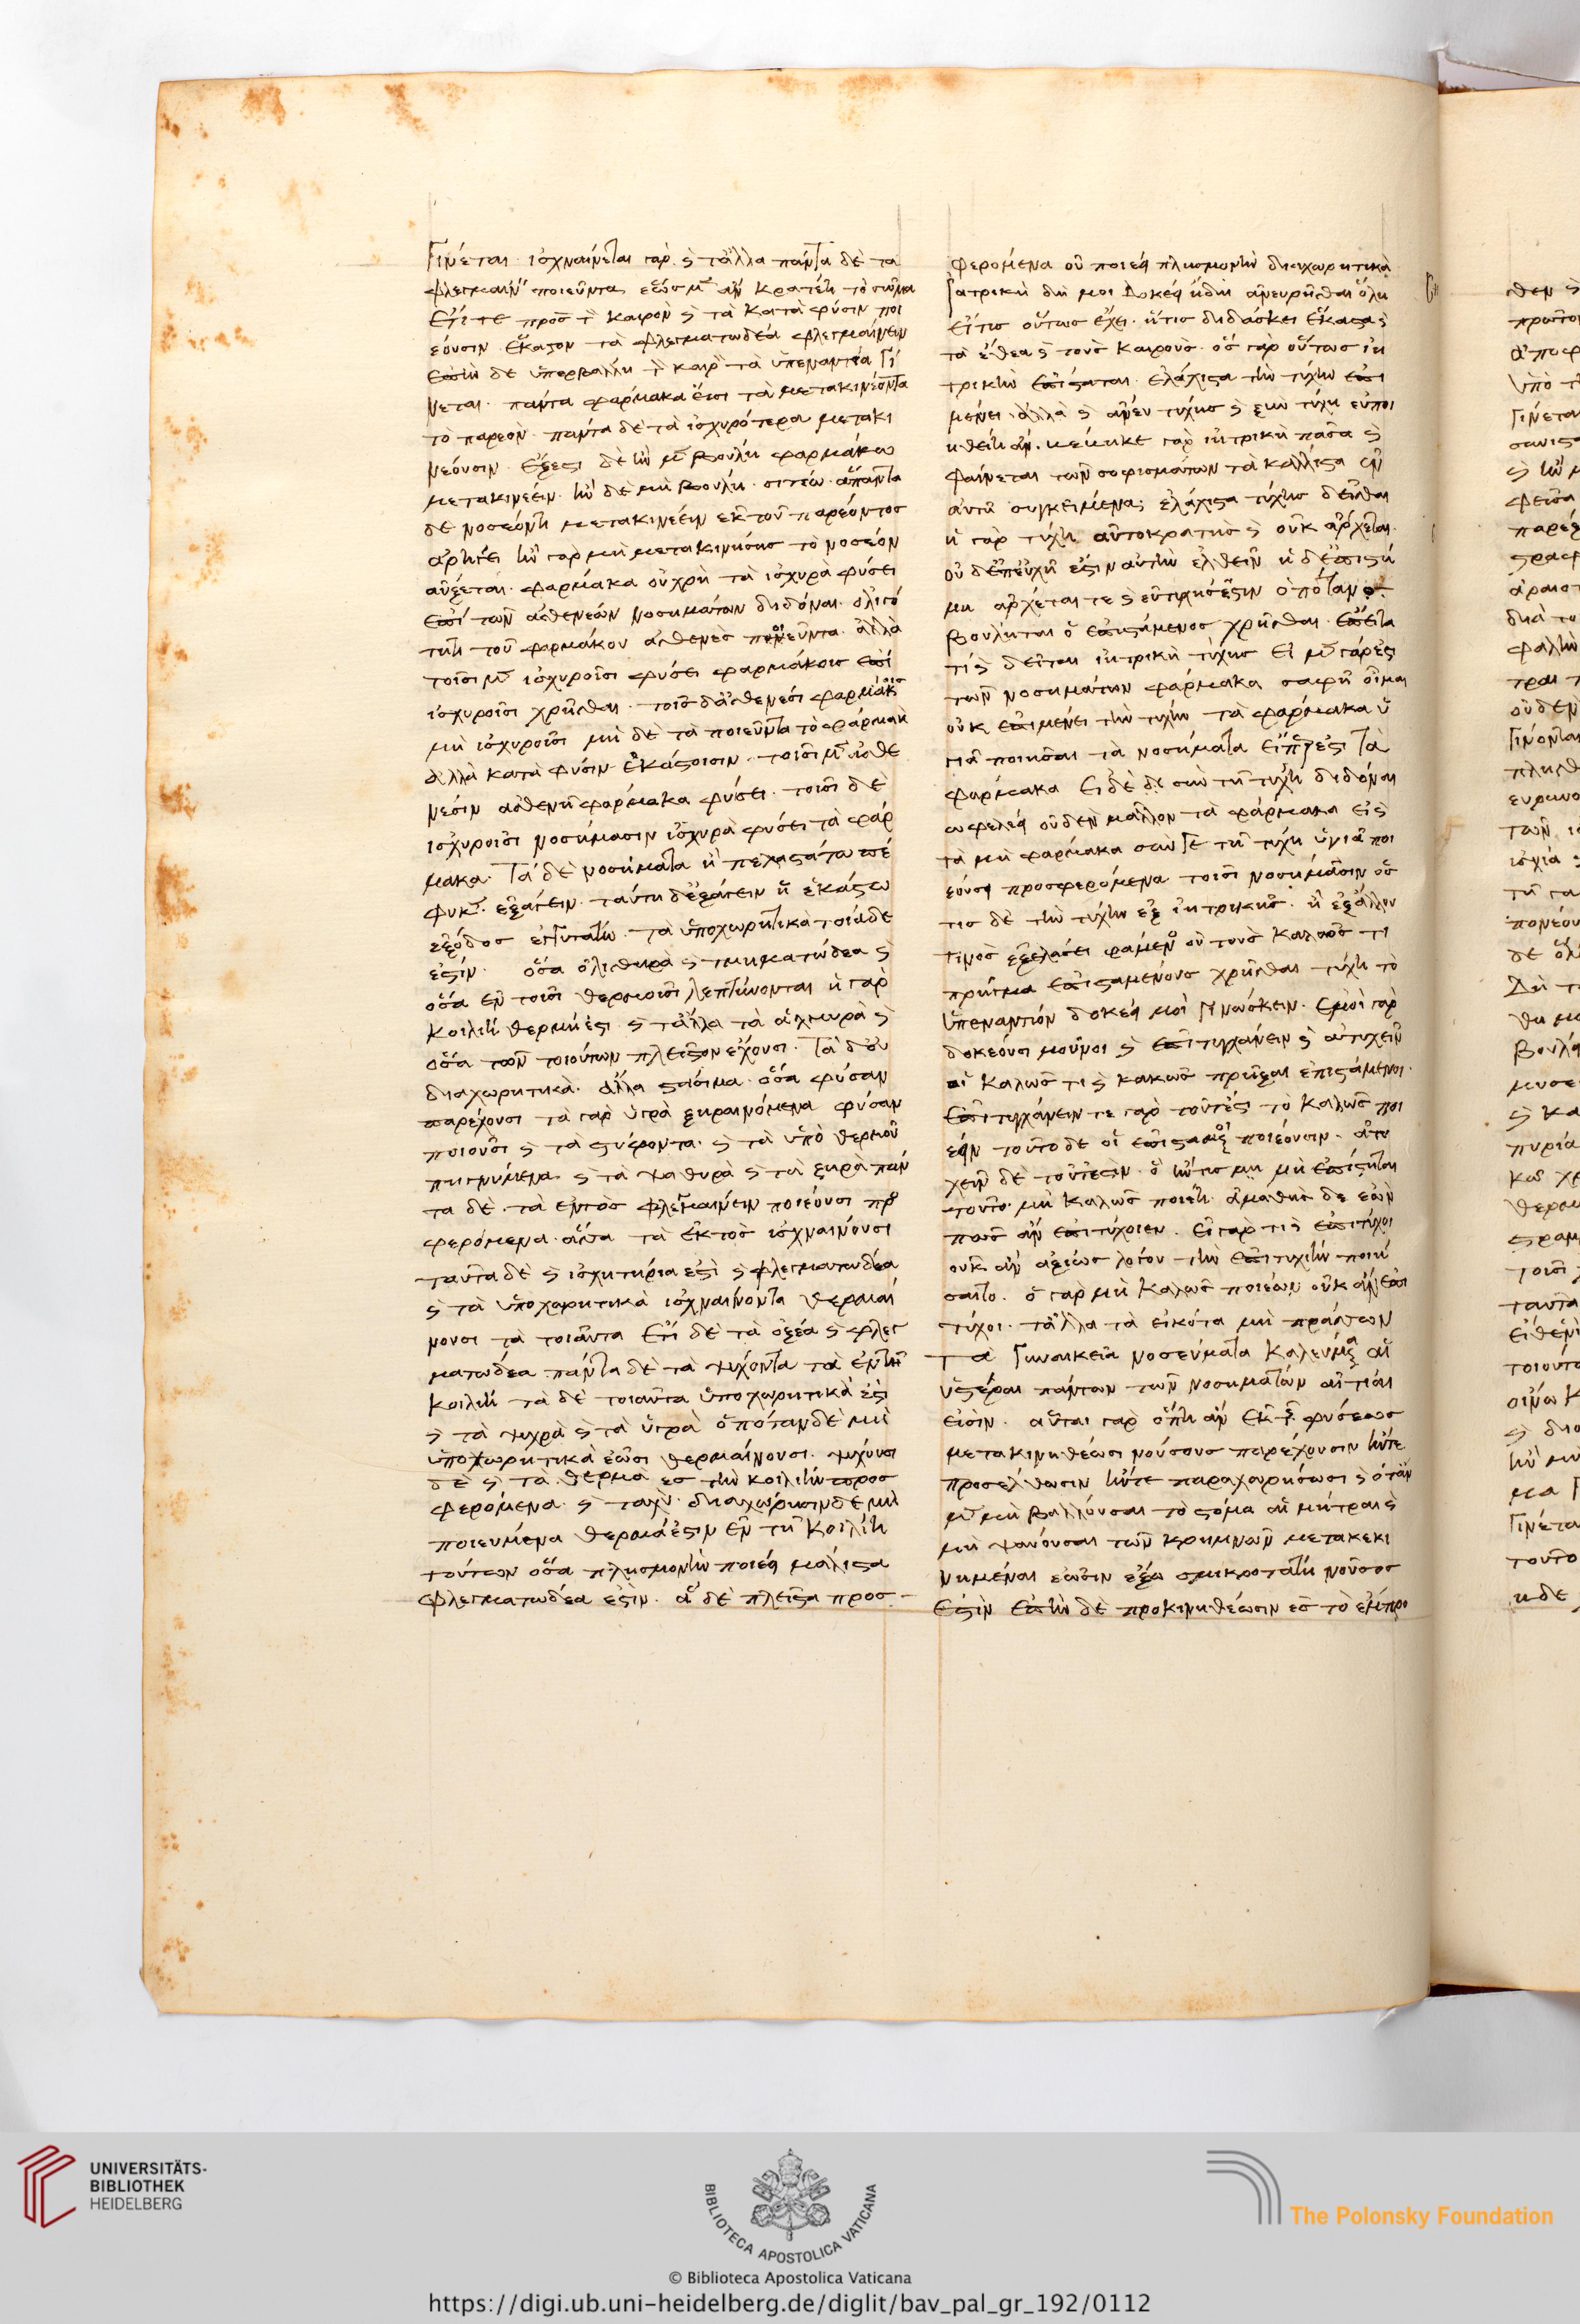 Γίνεται ἰσχναίνεται γὰρ ϛ τἄλλα πάντα δὲ τα
φλεγμαίν ποιεῦντα εἕως μ ἂν κρατέη τὸ σῶμα
ἔτι τε πρὸσ τ καιρὸν ϛ τὰ κατὰ φύσιν ποι
εόυσιν ἕκαϛον τὰ φλεγματωδέα φλεγμαίνειν
ἐπὴν δὲ ὑπερβάλλη τ καιρ τὰ ὑπεναντία γί
νεται. πάντα φάρμακα εἰσι τὰ μετακινέοντα
τὸ παρεὸν πάντα δὲ τὰ ἰσχυρότερα μετακι
νεόυσιν ἔξεϛι δὲ ἢν μ βούλη φαρμάκω
μετακινέειν ἢν δὲ μὴ βούλη. σιτίω. ἅπαντα
δὲ νοσέοντι μετακινέειν ἐκ τοῦ παρέοντος
ἀρήγει ἢν γὰρ μὴ μετακινήσης τὸ νοσέον
αὔξεται. φαρμάκα οὐ χρὴ τὰ ἰσχυρὰ φύσει
ἐπὶ τῶν ἀσθενεών νοσημάτων διδόναι. ὀλιγό
τητι τοῦ φαρμάκου ἀσθενὲς ποιεῦντα. ἀλλὰ
τοῖσι μ ἰσχυροῖσι φύσει φαρμάκοις ἐπὶ
ἰσχυροῖσι χρῆσθαι. τοῖσ δ ἀσθενέσι φαρμάκοις
μὴ ἰσχυροῖσι μὴ δὲ τὰ ποιεῦντα τὸ φάρμακ
ἀλλὰ κατὰ φύσιν ἑκάϛοισιν. τοῖσι μ ἀσθε
νέσιν ἀσθενῆ φαρμάκα φύσει. τοῖσι δὲ
ἰσχυροῖσι νοσήμασιν ἰσχυρὰ φύσει τὰ φάρ
μακα. Τὰ δὲ νοσήματα ἧ πεχαϛάτω πέ
φυκ. ἐξάγειν. ταύτη δ ἐξάγειν ἧ ἑκάϛω
ἔξοδος ἐγγυτάτη. τὰ ὑποχωρητικὰ τοιάδε
ἐϛίν. ὅσα ὀλισθηρὰ ϛ τμηματώδεα ϛ
ὅσα ἐν τοῖσι θερμοῖσι λεπτύνονται ἡ γὰρ
κοιλίη θερμή ἐϛι ϛ τἄλλα τὰ ἁλμυρὰ ϛ
ὅσα τῶν τοιούτων πλεῖϛον ἔχουσι. Τὰ δ οὐ
διαχωρητικὰ. ἀλλα ϛάσιμα. ὅσα φύσαν
παρέχουσι τὰ γὰρ ὑγρὰ ξηραινόμενα φύσαν
ποιοῦσι ϛ τὰ ϛύφοντα. ϛ τὰ ὑπὸ θερμοῦ
πηγνύμενα ϛ τὰ ψαθυρὰ ϛ τὰ ξηρὰ πάν
τα δὲ. τὰ ἐντὸσ φλεγμαίνειν ποιέουσι προσ
φερόμενα. ἅπα τὰ ἐκτὸς ἰσχναίνουσι
ταῦτα δὲ ϛ ἰσχητήρια ἐϛὶ ϛ φλεγματωδέα
ϛ τὰ ὑποχωρητικὰ ἰσχναίνοντα θερμαί
νουσι τὰ τοιαῦτα ἔτι δὲ τὰ ὀξέα ϛ φλεγ
ματωδέα πάντα δὲ τὰ ψύχοντα τὰ ἐν τῆ
κοιλίη τὰ δὲ τοιαῦτα ὑποχωρητικὰ ἐϛι
ϛ τὰ ψυχρὰ ϛ τὰ ὑγρὰ ὁπόταν δὲ μὴ
ὑποχωρητικὰ ἔωσι θερμαίνουσι. ψύχουσι
δὲ ϛ τὰ θερμὰ ἐς τὴν κοιλίην προσ
φερόμενα. ϛ ταχὺ διαχώρησιν δὲ μὴ
ποιευμένα θερμά ἐϛιν ἐν τῆ κοιλίη
τούτεων ὅσα πλησμονὴν ποιέει μάλιϛα
φλεγματωδέα ἐϛὶν. ἃ δὲ πλεῖϛα προσ
φερομένα οὐ ποιέει πλησμονὴν διαχωρητικά
Ἰατρικὴ δή μοι δοκέει ἤδη ἀνευρῆσθαι ὅλη
εἴ τισ οὕτως ἔχει. ἥτις διδάσκει ἕκαϛα ϛ
τὰ ἔθεα ϛ τοὺς καιροὺς. ὃς γὰρ οὕτως ἰη
τρικὴν ἐπίϛαται. ἐλάχιϛα τὴν τύχην ἐπι
μένει ἀλλὰ ϛ ἄνευ τύχησ ϛ ξὺν τύχη εὖ ποι
ηθείη ἄν. βέβηκε γὰρ ἰητρικὴ πᾶσα ϛ
φαίνεται τῶν σοφισμάτων τὰ κάλλιϛα ἐν
αὐτῆ συγκείμενα ἐλάχιϛα τύχης δεῖσθαι
ἡ γὰρ τύχη αὐτοκρατὴς ϛ οὐκ ἄρχεται.
οὐ δ ἐπ εὐχῆ ἐϛιν αὐτὴν ἐλθεῖν ἡ δ ἐπιϛή
μη ἄρχεταί τε ϛ εὐτυχής ἐϛιν ὁπόταν
βούληται ὁ ἐπιϛάμενος χρῆσθαι. ἔπειτα
τί ϛ δεῖται ἰητρικὴ τύχης εἰ μ γάρ ἐϛι
τῶν νοσημάτων φάρμακα σαφῆ οἶμαι
οὐκ ἐπιμένει τὴν τύχην τὰ φαρμάκα ὑ
γιᾶ ποιῆσαι τὰ νοσήματα εἴπερ ἐϛι τὰ
φαρμάκα εἰ δὲ δὴ σὺν τῆ τύχη διδόναι
ὠφελέει οὐδὲν μᾶλλον τὰ φάρμακα εἰς
τὰ μὴ φαρμάκα σὺν γε τῆ τύχη ὑγιᾶ ποι
έουσι προσφερόμενα τοῖσι νοσήμασιν ὅσ
τις δὲ τὴν τύχην ἐξ ἰητρικῆς. ἢ ἐξ ἄλλου
τινὸς ἐξελάσει φαμεν οὐ τοὺς καλῶς τι
πρῆγμα ἐπιϛαμένους χρῆσθαι τύχη τὸ
ὑπεναντίον δοκέει μοὶ γινώσκειν. Ἐμοὶ γὰρ
δοκέουσι μοῦνοι ϛ ἐπιτυγχάνειν ϛ ἀτυχεῖν
οἱ καλῶς τι ϛ κακῶς πρῆξαι ἐπιϛάμενοι.
ἐπιτυγχάνειν τε γὰρ τοῦτ ἐϛι τὸ καλῶς ποι
έειν τοῦτο δὲ οἱ ἐπιϛαμενοι ποιέουσιν. ἀτυ
χεῖν δὲ τοῦτ ἐϛιν. ὃ ἤν τις μη μὴ ἐπίϛηται
τοῦτο μὴ καλῶς ποιέη. ἀμαθὴς δὲ ἐὼν
πῶς ἂν ἐπιτύχοιεν. εἰ γάρ τι ϛ ἐπιτύχοι
οὐκ ἂν ἀξίως λόγου τὴν ἐπιτυχίην ποιή
σαιτο. ὁ γὰρ μὴ καλῶς ποιέων οὐκ ἂν ἐπι
τύχοι. τἄλλα τὰ εἰκότα μὴ πράσσων
Τὰ γυναικεῖα νοσεύματα καλευμ αἱ
ὑϛέραι πάντων τῶν νοσημάτων αἴτιαι
εἰσὶν. αὗται γὰρ ὅπη ἂν ἐκ τ φύσεως
μετακινηθέωσι νούσους παρέχουσιν ἤν τε
προσέλθωσιν ἤν τε παραχωρήσωσι ϛ ὅταν
μ μὴ βάλλουσαι τὸ ϛόμα αἱ μήτραι ϛ
μὴ ψαύουσαι τῶν κρημνῶν μετακεκι
νημέναι ἔωσιν ἔξω σμικροτάτη νοῦσος
ἐϛὶν ἐπὴν δὲ προκινηθέωσιν ἐς τὸ ἔμπρο
UNIVERSITÄTS-
BIBLIOTHEK
HEIDELBERG
BIBLIOTECA APOSTOLICA VATICANA
The Polonsky Foundation
© Biblioteca Apostolica Vaticana
https://digi.ub.uni-heidelberg.de/diglit/bav_pal_gr_192/0112